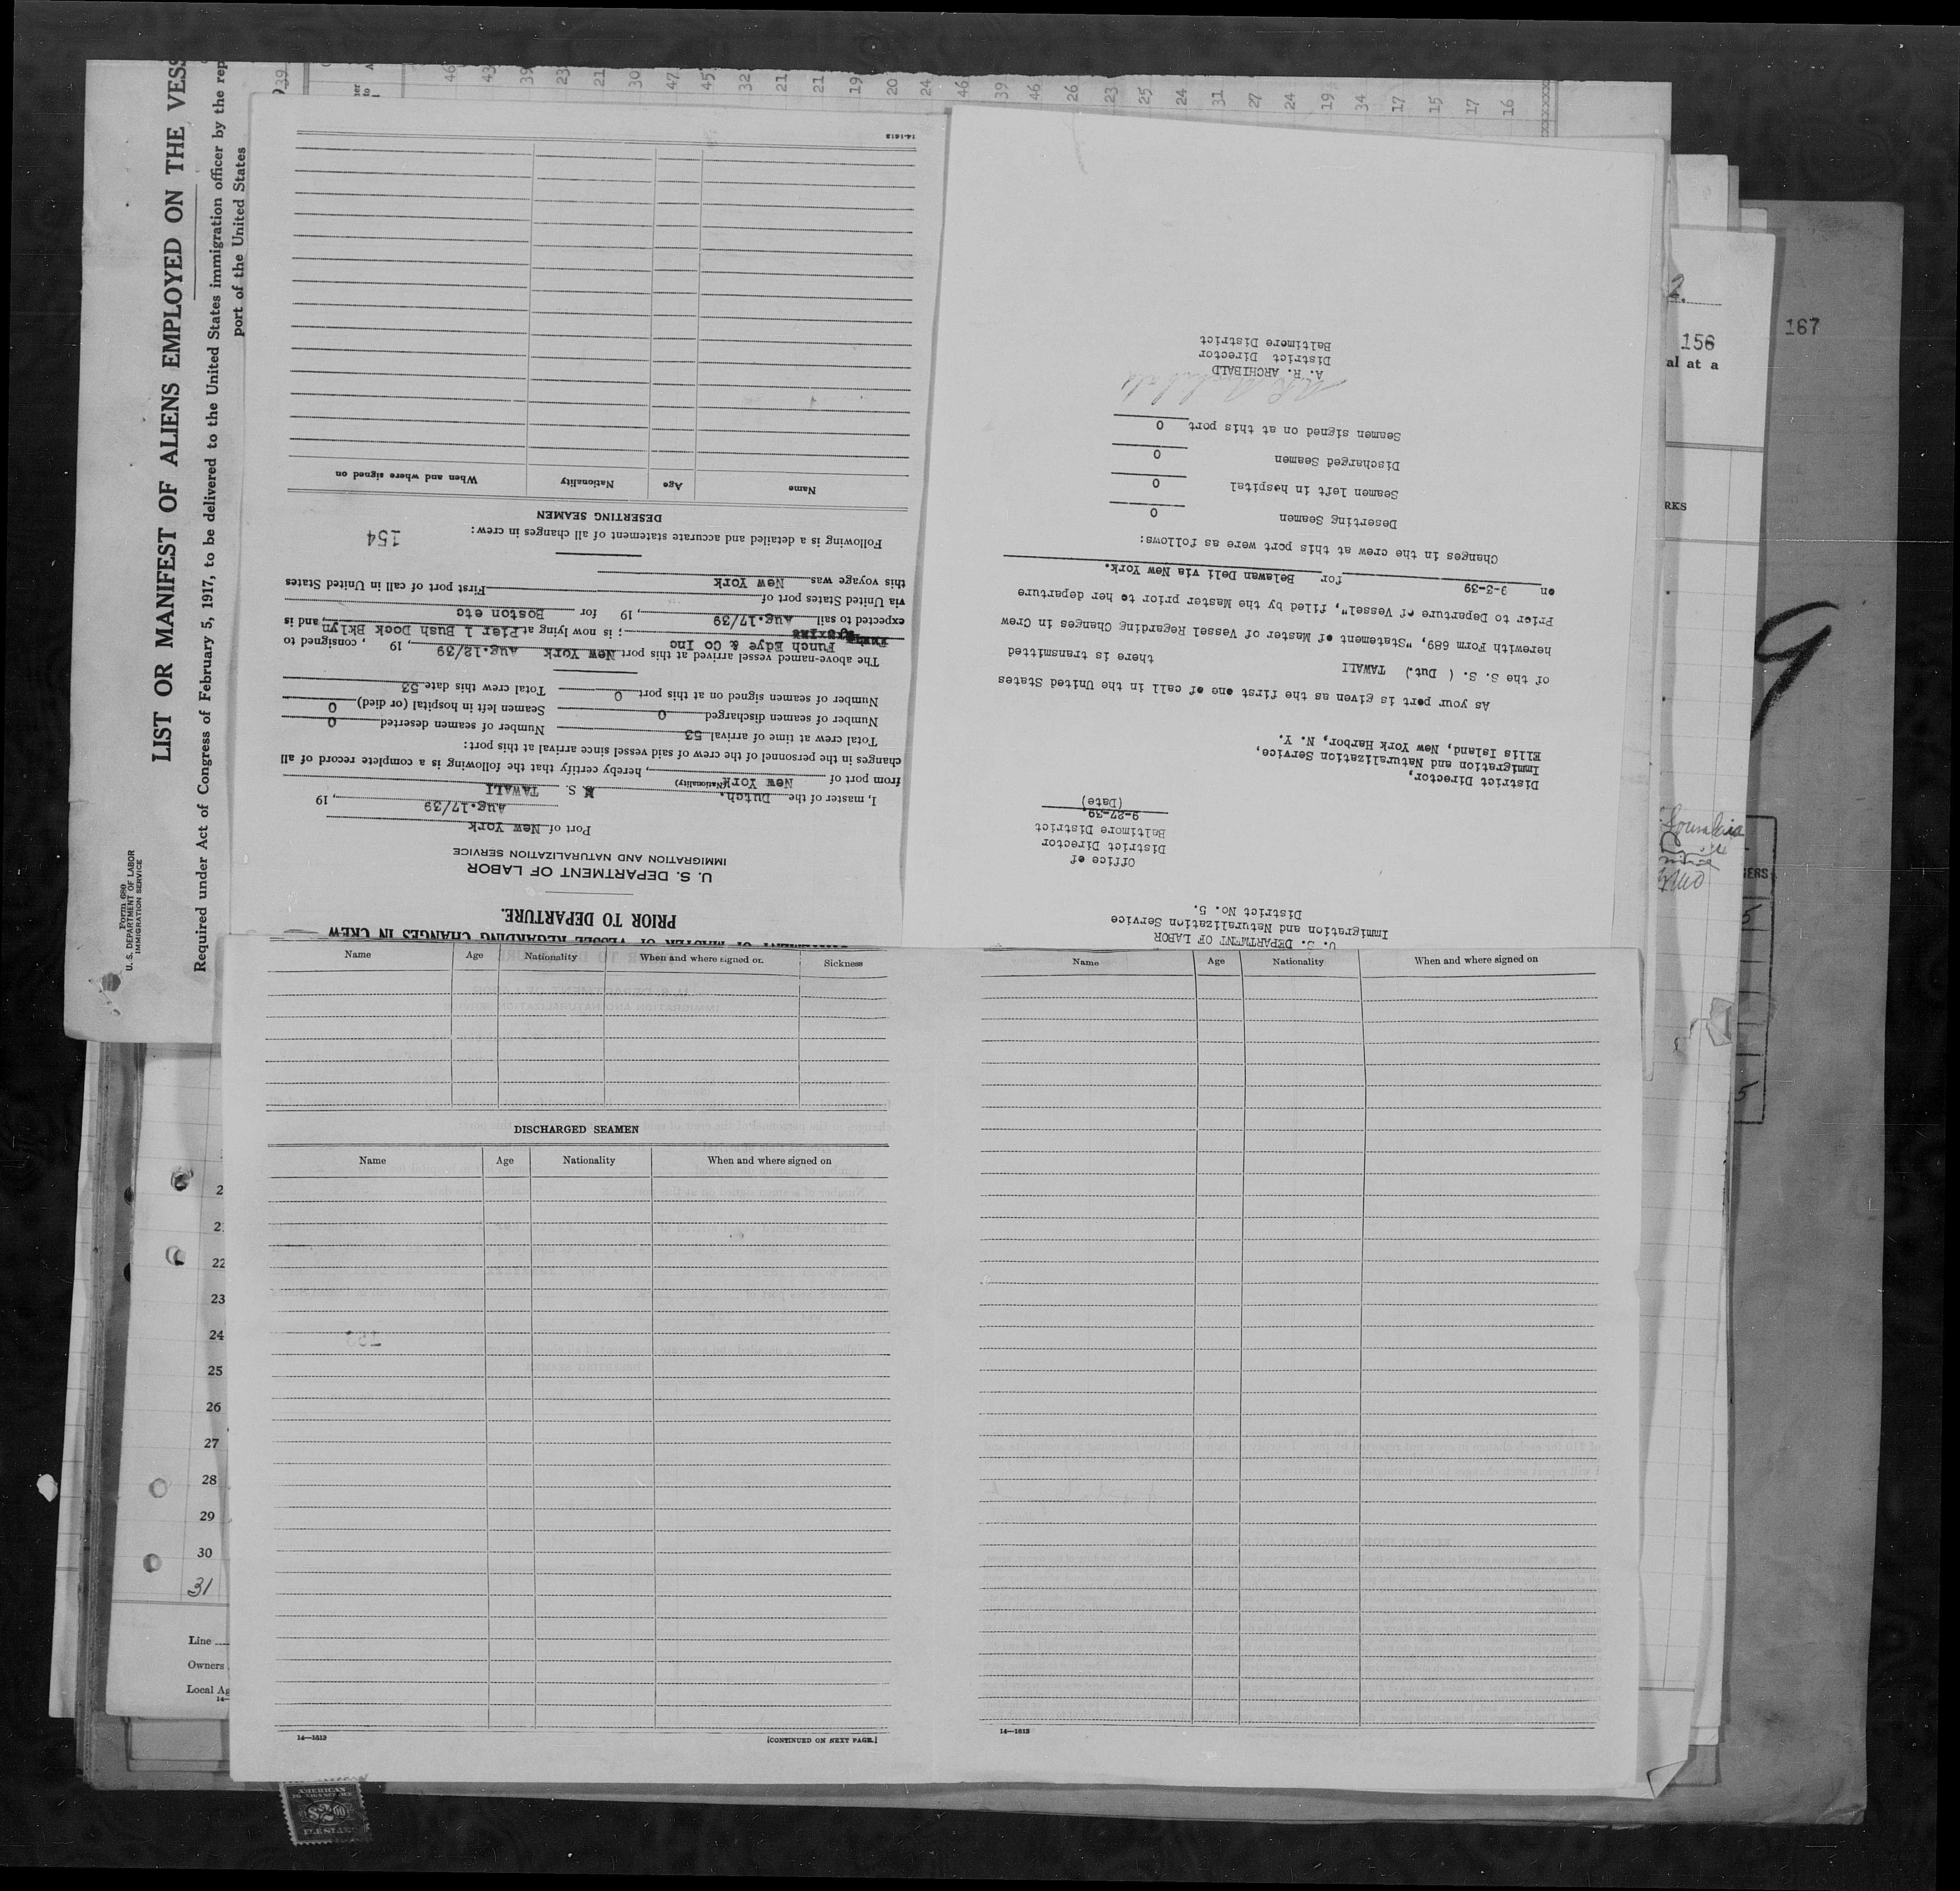 Form 680
U. S. DEPARTMENT OF LABOR
IMMIGRATION SERVICE
LIST OR MANIFEST OF ALIENS EMPLOYED ON THE VESS
Required under Act of Congress of February 5, 1917, to be delivered to the United States immigration officer by the rep
port of the United States
39
46
43
39
23
21
30
47
45
32
21
21
19
20
24
46
39
46
26
23
25
24
31
27
24
19
34
17
15
17
16
PRIOR TO DEPARTURE.
U. S. DEPARTMENT OF LABOR
IMMIGRATION AND NATURALIZATION SERVICE
Port of New York
Aug.17/39, 19
I, master of the Dutch. S. TAWALI
(Nationality)
from port of New York, hereby certify that the following is a complete record of all
changes in the personnel of the crew of said vessel since arrival at this port:
Total crew at time of arrival 53 Number of seamen deserted 0
Number of seamen discharged 0 Seamen left in hospital (or died) 0
Number of seamen signed on at this port 0 Total crew this date 53
The above-named vessel arrived at this port New York Aug.12/39, 19 , consigned to
Funch Edye & Co Inc ; is now lying at Pier 1 Bush Dock Bklyn, and is
expected to sail Aug.17/39, 19 for Boston etc
via United States port of First port of call in United States
this voyage was New York
Following is a detailed and accurate statement of all changes in crew: 154
DESERTING SEAMEN
Name Age Nationality When and where signed on
14-1613
U. S. DEPARTMENT OF LABOR
Immigration and Naturalization Service
District No. 5.
Office of
District Director
Baltimore District
9-27-39.
(Date)
District Director,
Immigration and Naturalization Service,
Ellis Island, New York Harbor, N. Y.
As your port is given as the first one of call in the United States
of the S. S. ( Dut.) TAWALI there is transmitted
herewith Form 689, "Statement of Master of Vessel Regarding Changes in Crew
Prior to Departure of Vessel", filed by the Master prior to her departure
on 9-3-39 for Belawan Deli via New York.
Changes in the crew at this port were as follows:
Deserting Seamen 0
Seamen left in hospital 0
Discharged Seamen 0
Seamen signed on at this port 0
A. R. ARCHIBALD
District Director
Baltimore District
Name Age Nationality When and where signed or. Sickness
DISCHARGED SEAMEN
Name Age Nationality When and where signed on
14—1613 [CONTINUED ON NEXT PAGE.]
Name Age Nationality When and where signed on
14—1613
2.
156
al at a
RKS
167
9
ERS
5
5
2
21
22
23
24
25
26
27
28
29
30
31
Line
Owners
Local Ag
14—
AMERICAN
$2.00
FEE STAMP